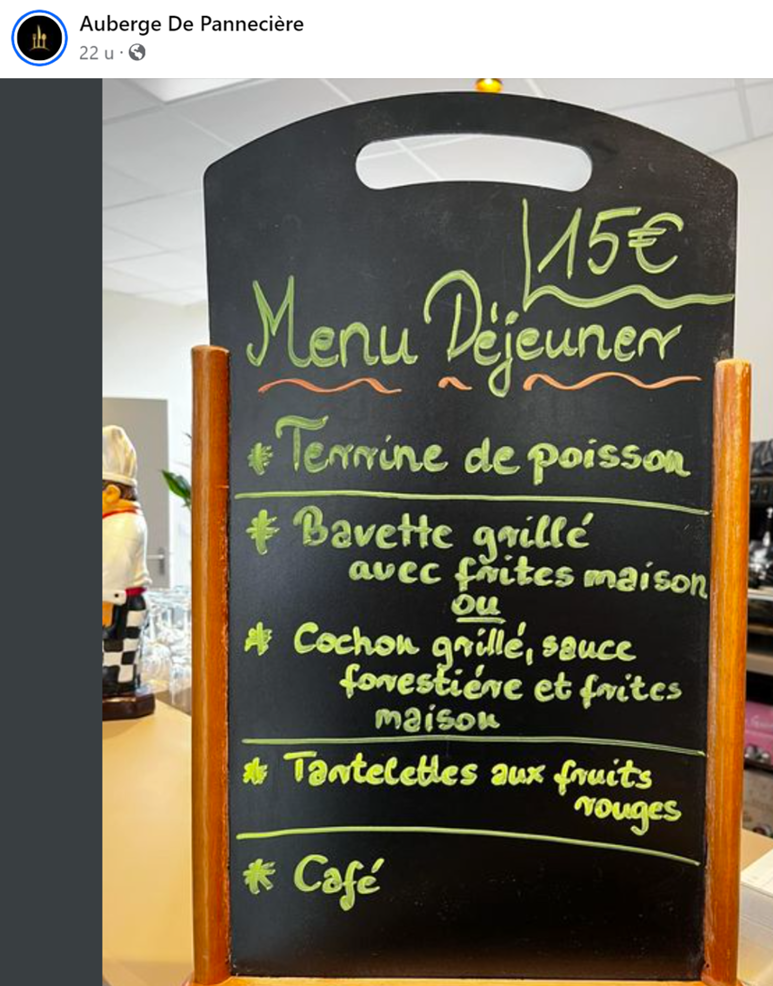 Auberge De Pannecière
22 u ·
15€
Menu Déjeuner
* Terrine de poisson
* Bavette grillé
avec frites maison
ou
* Cochon grillé, sauce
forestiére et frites
maison
* Tartelettes aux fruits
rouges
* Café